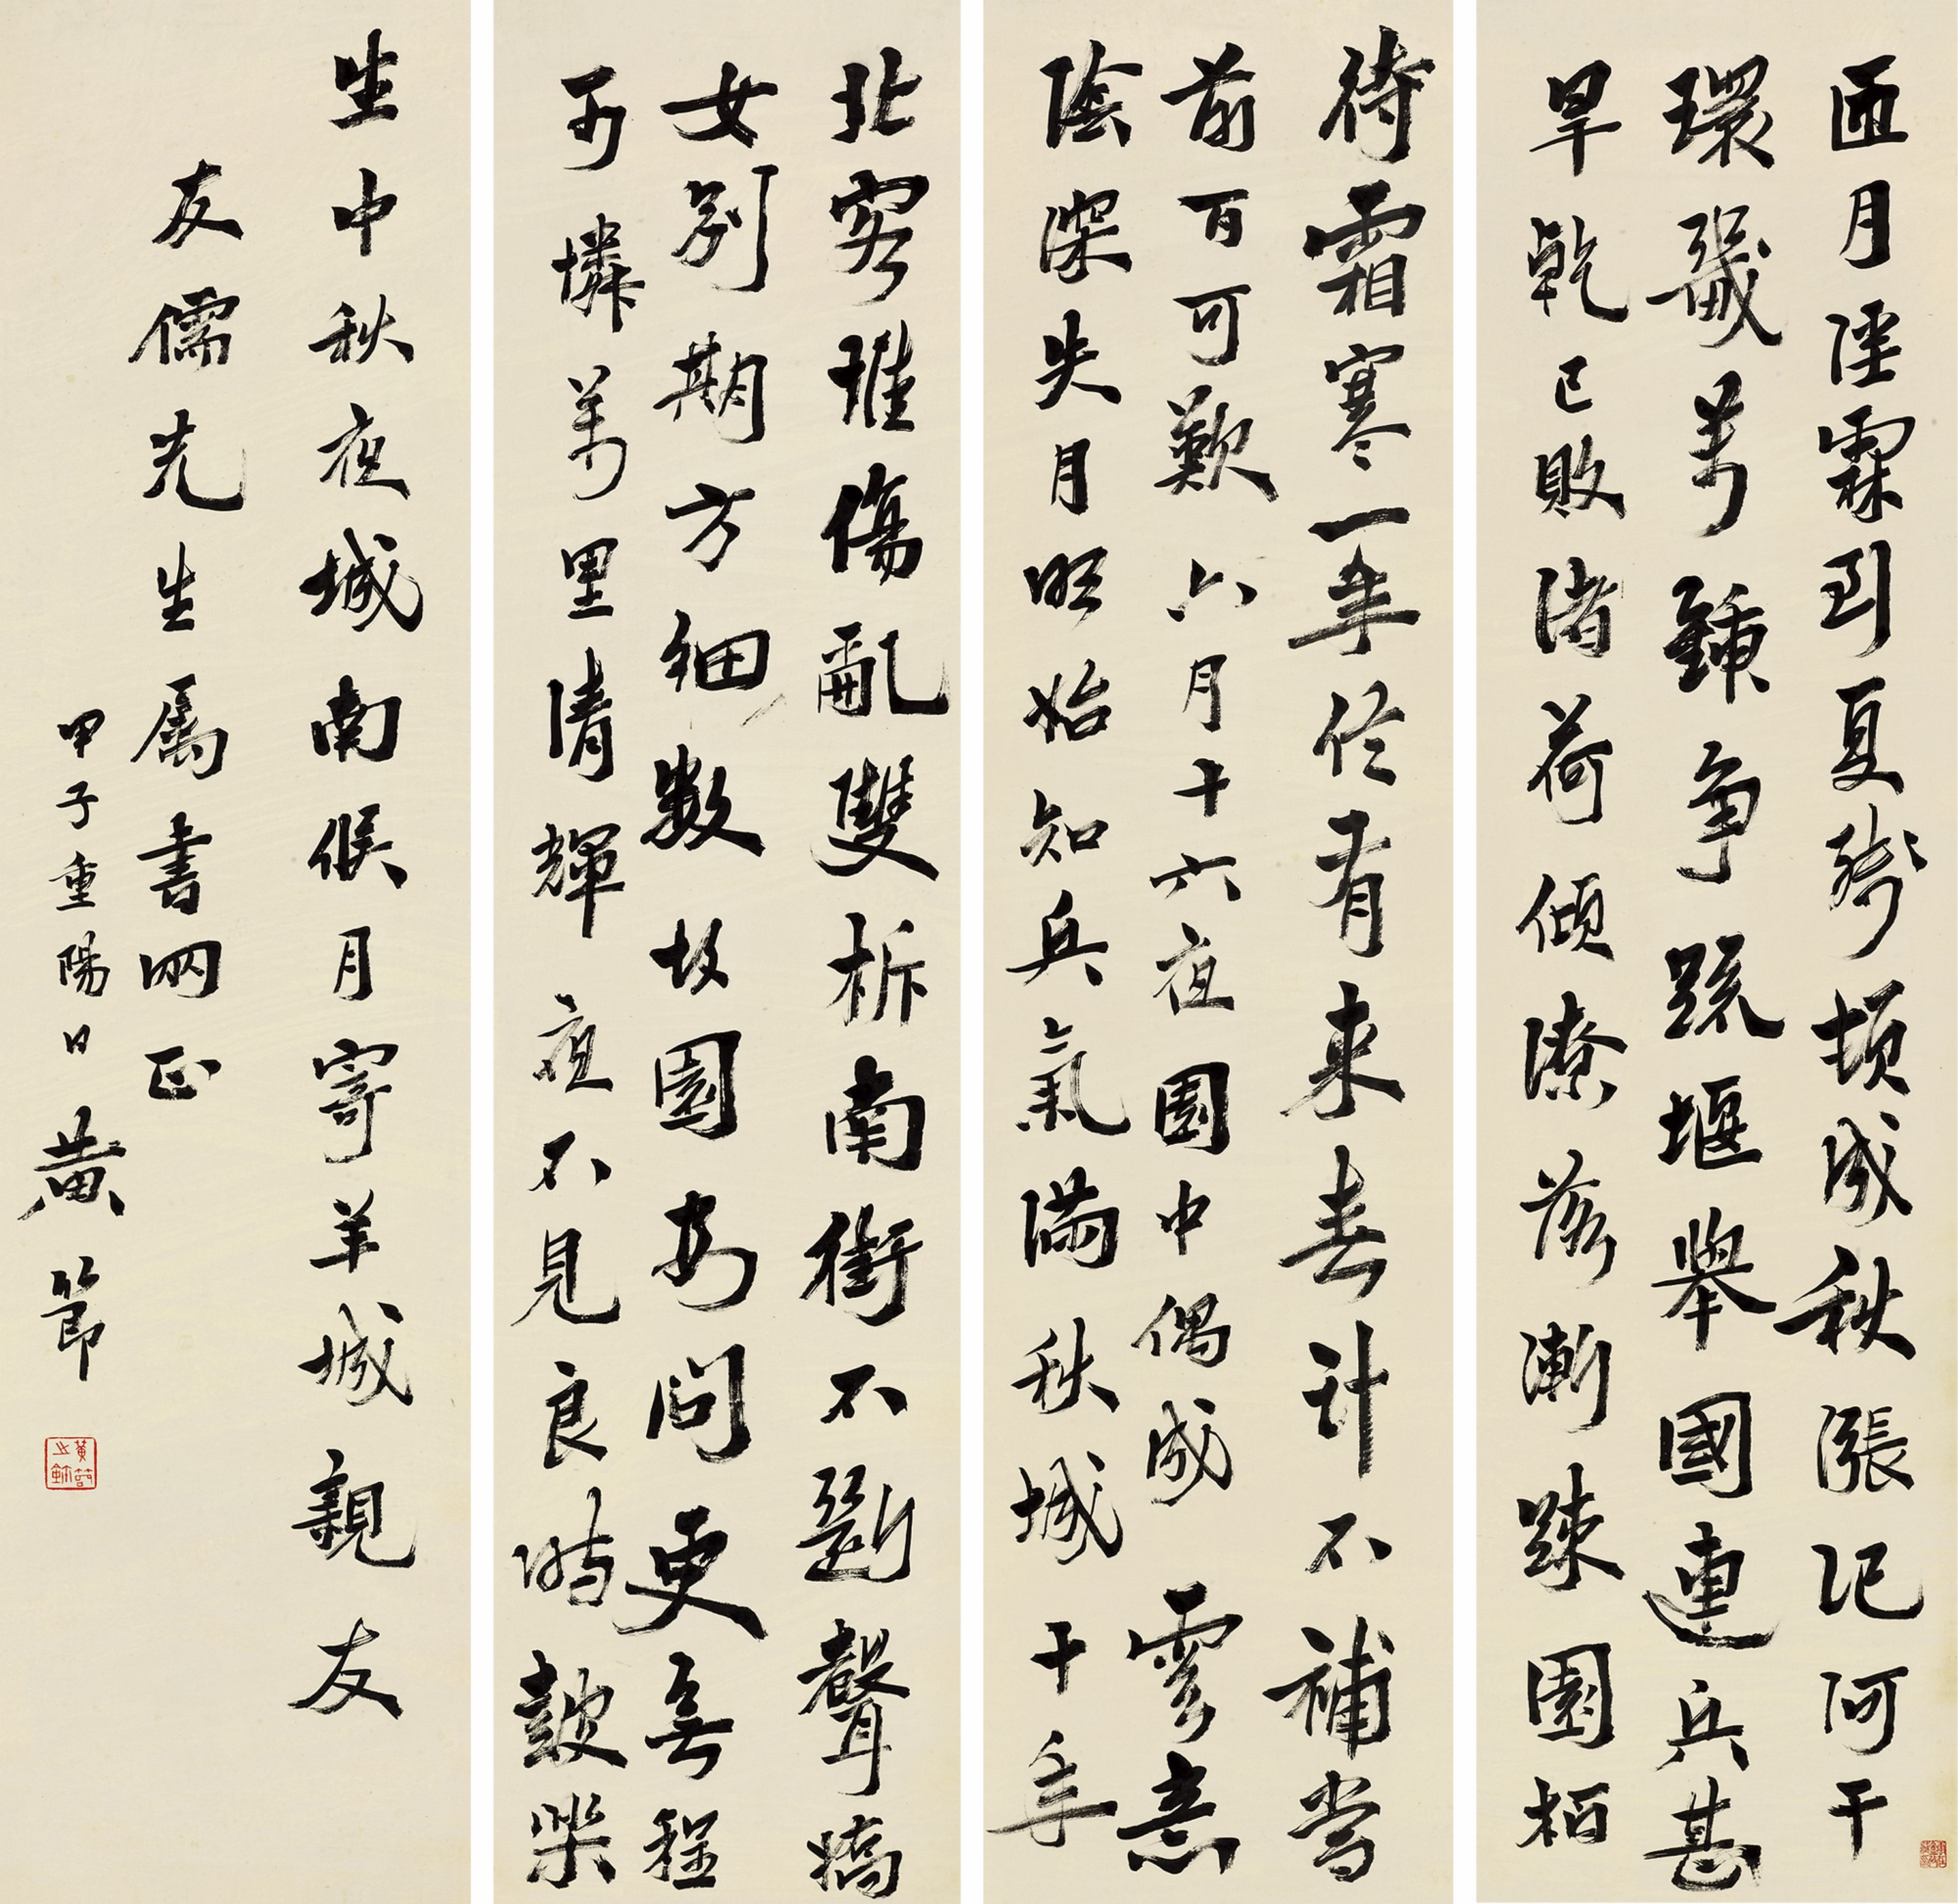 匝月淫霖到夏殘填成秋漲汜河干
環畿萬鍾爭疏堰舉國連兵甚
旱乾已敗渚荷傾潦落漸疎園柏
待霜寒一年終看來去計不補當
前百可歎六月十六夜園中偶成雲意
陰深失月明始知兵氣滿秋城十年
北客堆傷亂雙柝南街不斷聲嬌
女別期方細數故園安問更無程
可憐萬里清輝夜不見良時鼓樂
生中秋夜城南候月寄羊城親友
友儒先生属書兩正
甲子重陽日黃節